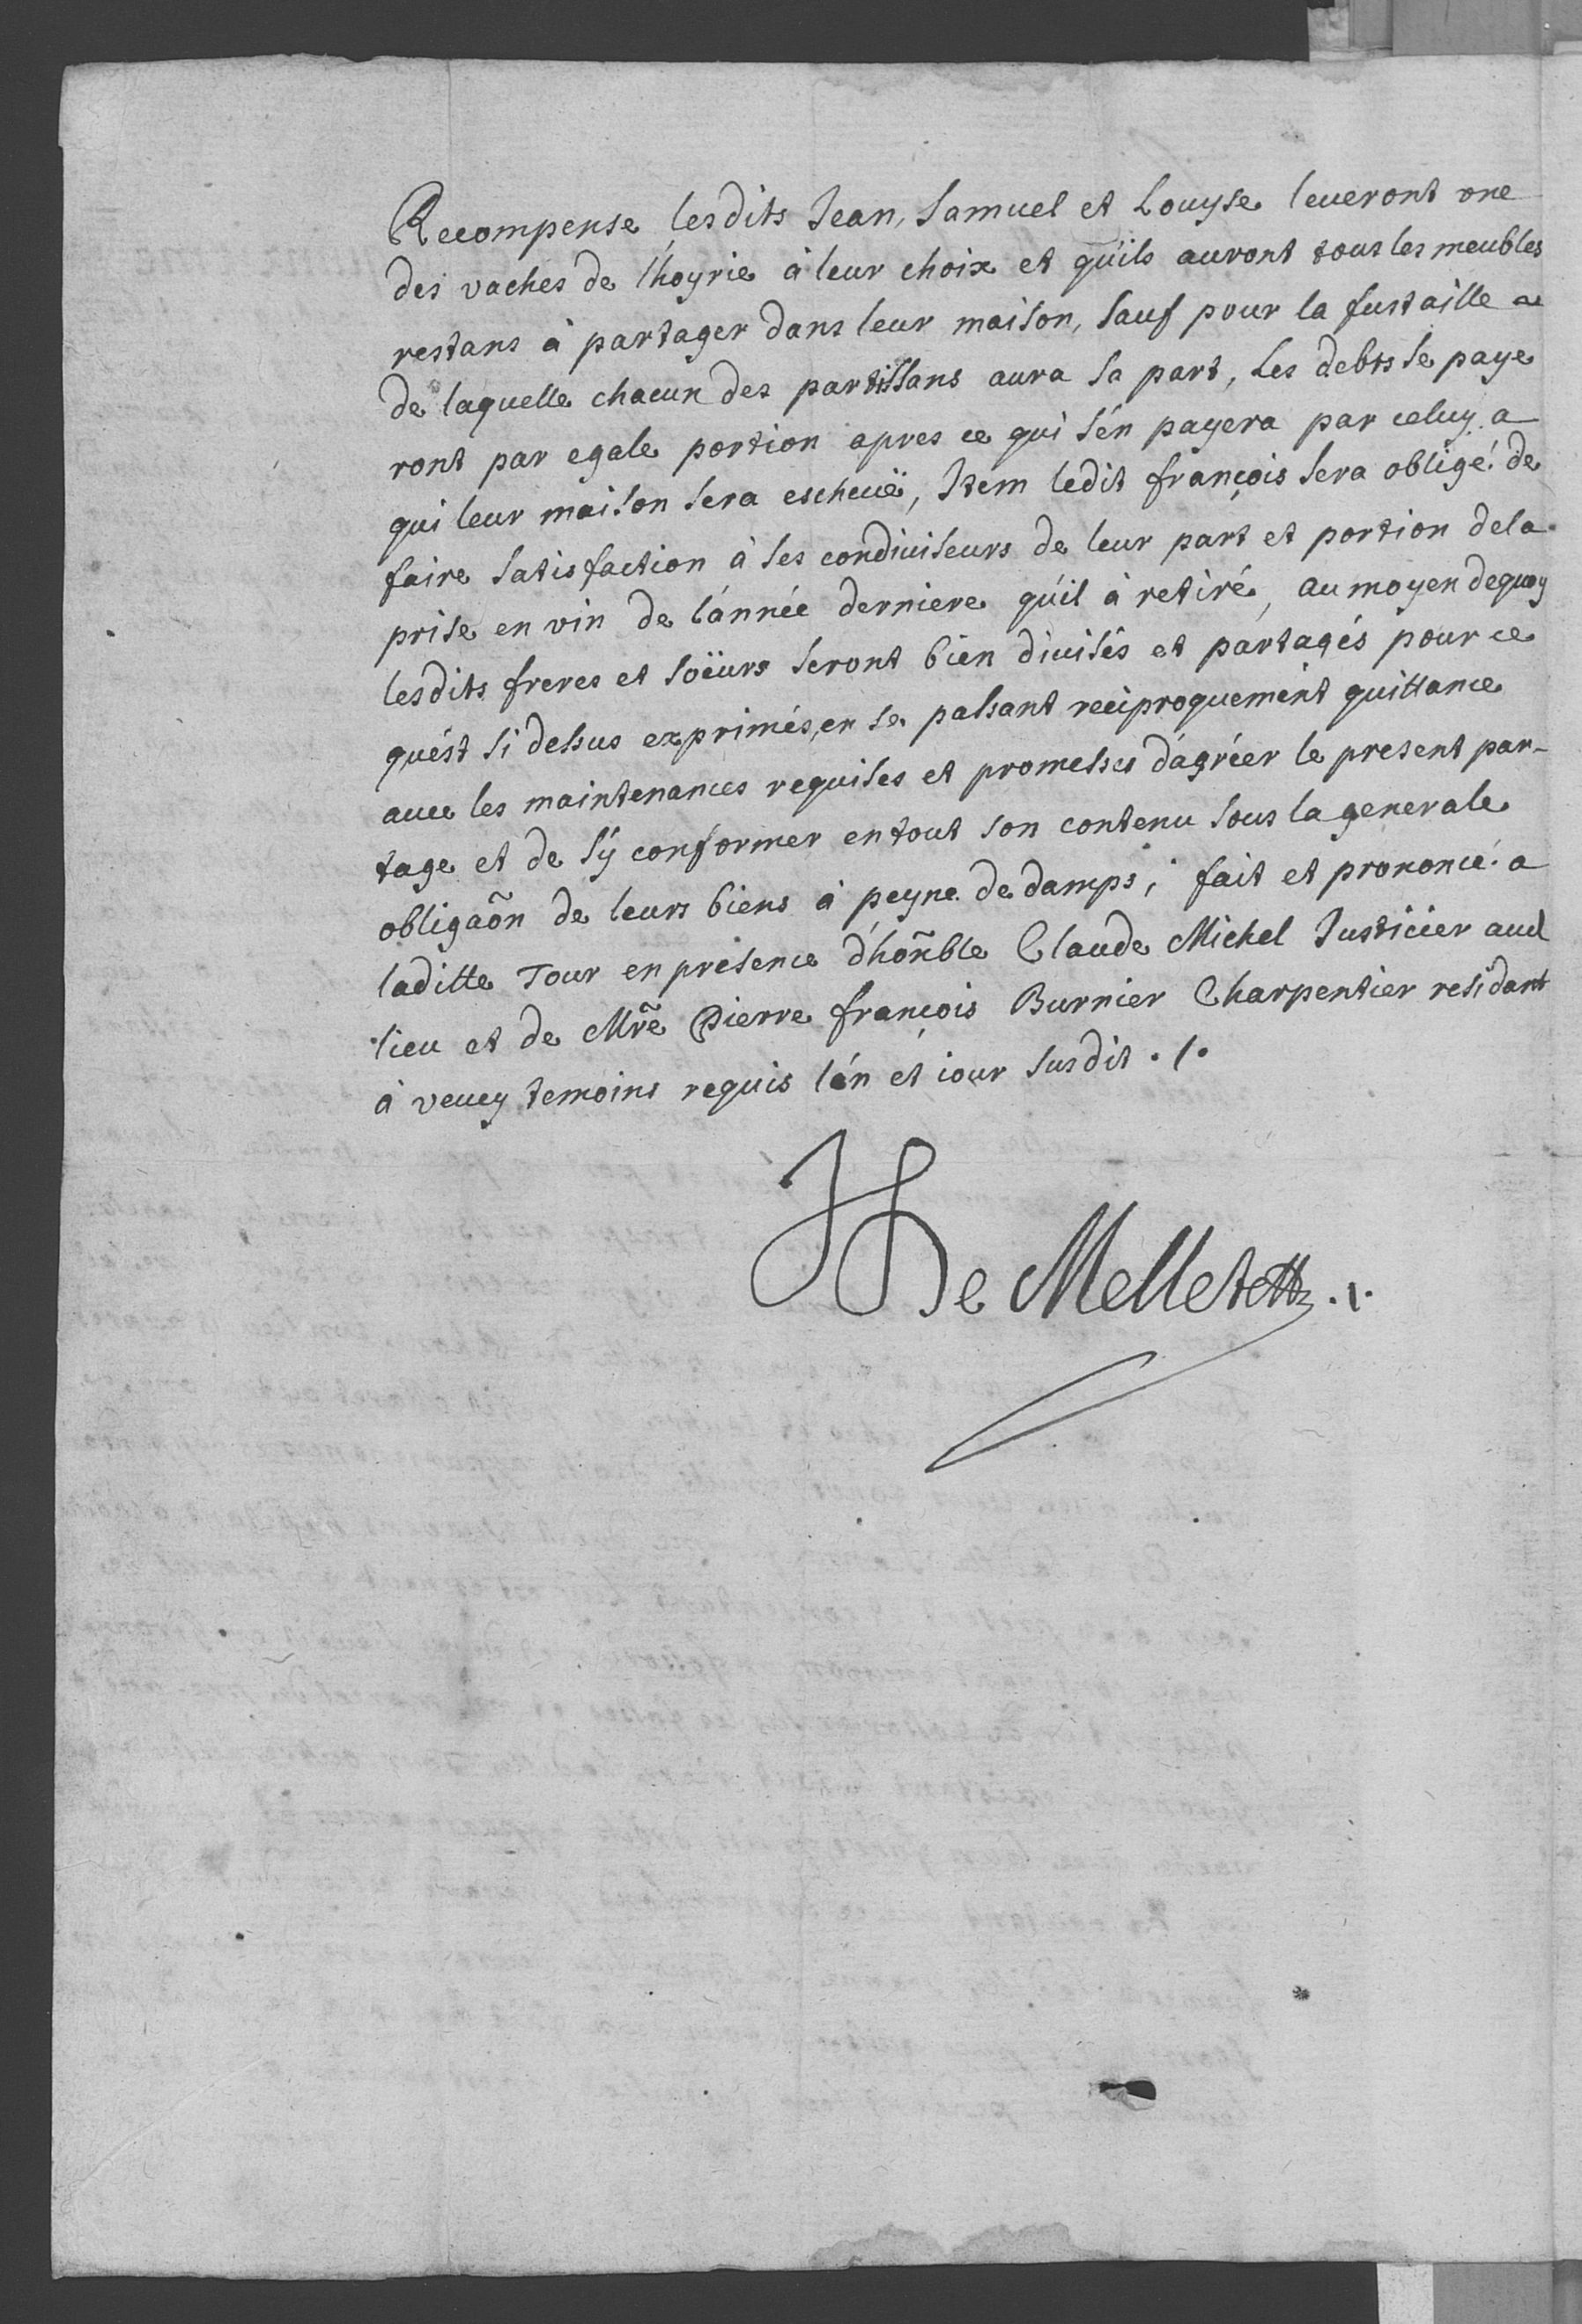 Recompense lesdits Jean, Samuel et Louyse leueront vne
des vaches de l'hoyrie à leur choix et qu'ils auront tous les meubles
restans à partager dans leur maison, sauf pour la fustaille
de laquelle chacun des partissans aura sa part, Les debts se paye
ront par egale portion apres ce qui s'en payera par celuy a
qui leur maison sera escheuë, Item ledit françois sera obligé de
faire satisfaction à ses condiuiseurs de leur part et portion dela
prise en vin de l'année derniere qu'il à retiré, au moyen dequoy
lesdits freres et soëurs seront bien diuisés et partagés pour ce
qu'est si dessus exprimés, en se passant reciproquement quittance
auec les maintenances requises et promesses d'agréer le present par-
tage et de s'y conformer en tout son contenu sous la generale
obligaõn de leurs biens à peyne de damps, fait et prononcé a
laditte Tour en presence d'hoñble Claude Michel Justicier aud
lieu et de Mre Pierre françois Burnier Charpentier residant
à veuey temoins requis l'an et iour susdit ./.
De Mellet